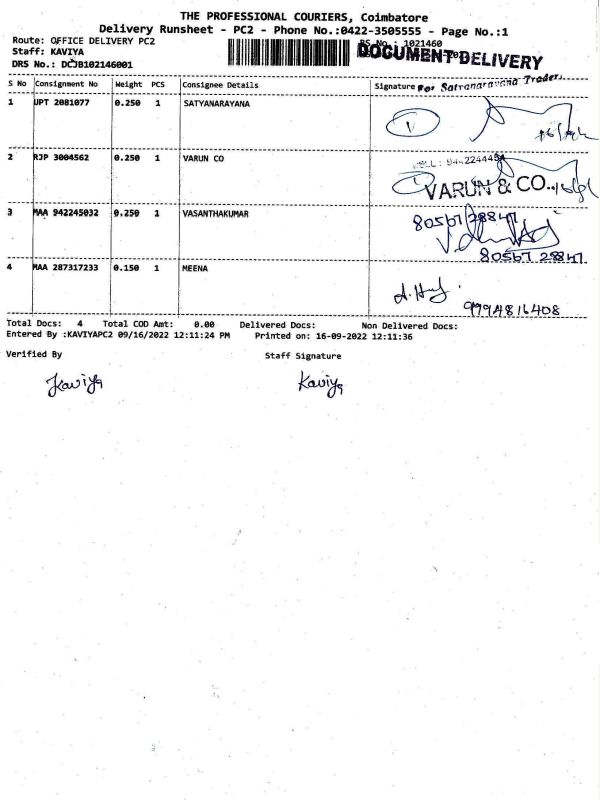 THE PROFESSIONAL COURIERS, Coimbatore
Delivery Runsheet - PC2 - Phone No.:0422-3505555 - Page No.:1
Route: OFFICE DELIVERY PC2
Staff: KAVIYA
RS No.: 1021460
DOCUMENT DELIVERY
DRS No.: DCJB102146001
S No Consignment No Weight PCS Consignee Details Signature
For Satyanarayana Traders
1 UPT 2081077 0.250 1 SATYANARAYANA
2 RJP 3004562 0.250 1 VARUN CO
VARUN & CO.,
3 MAA 942245032 0.250 1 VASANTHAKUMAR
80567 28847
80567 28847
4 MAA 287317233 0.150 1 MEENA
9994816408
Total Docs: 4 Total COD Amt: 0.00 Delivered Docs: Non Delivered Docs:
Entered By :KAVIYAPC2 09/16/2022 12:11:24 PM Printed on: 16-09-2022 12:11:36
Verified By Staff Signature
Kaviya Kaviya